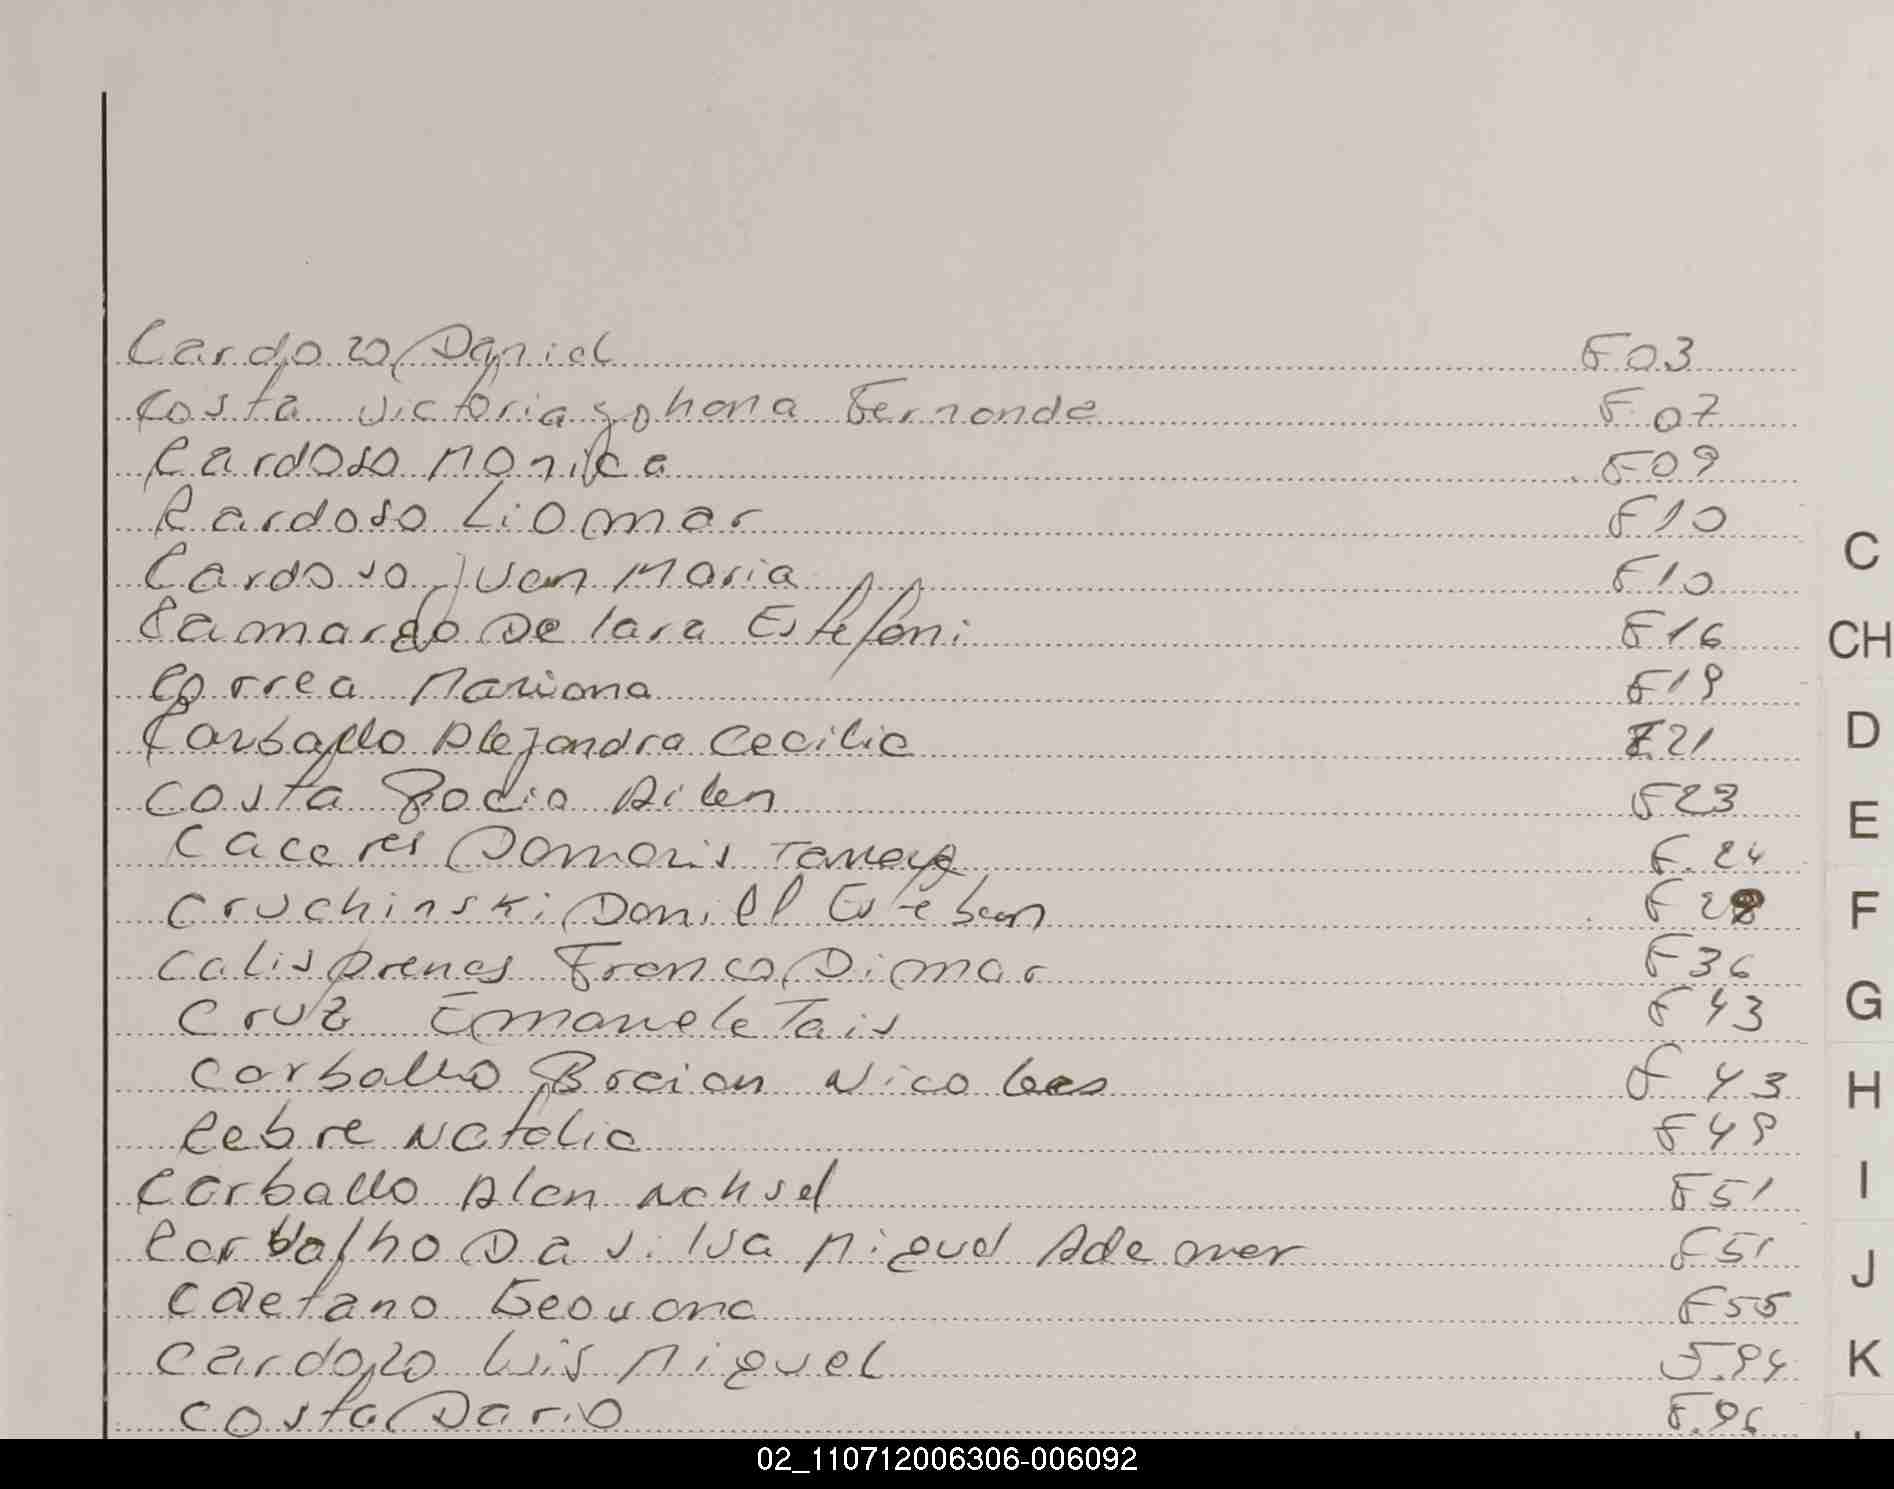 Cardozo Daniel F03
Costa Victoria Johana Fernanda F.07
Cardoso Monica F09
Cardoso Liomar F10
Cardoso Juan Maria F10
Camargo De lara Estefani F16
Correa Mariana F19
Carballo Alejandra Cecilia F21
Costa Rocio Ailen F23
Caceres Damaris F.24
Cruchinski Daniel Esteban
Franco Dimar F36
Cruz Emanuele Tais F43
Carballo Braian Nicolas F43
Cebre Natalia F49
Carballo Alan Nahuel F51
Carvalho Da Silva Miguel Ademar F51
Caetano Geovana F55
Cardozo Luis Miguel F.94
Costa Dario F.96
C
CH
D
E
F
G
H
I
J
K
02_110712006306-006092